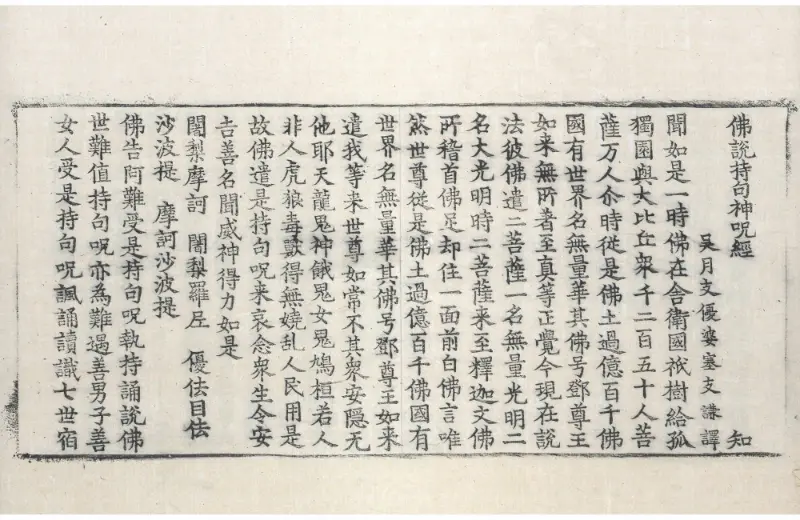 佛說持句神呪經　知
吳月支優婆塞支謙譯
聞如是一時佛在舍衛國祇樹給孤
獨園與大比丘衆千二百五十人菩
薩万人尒時從是佛土過億百千佛
國有世界名無量華其佛号鄧尊王
如来無所著至真等正覺今現在說
法彼佛遣二菩薩一名無量光明二
名大光明時二菩薩来至釋迦文佛
所稽首佛足却住一面前白佛言唯
然世尊從是佛土過億百千佛國有
世界名無量華其佛号鄧尊王如来
遣我等来世尊如常不其衆安隱无
他耶天龍鬼神餓鬼女鬼鳩桓若人
非人虎狼毒獸得無嬈乱人民用是
故佛遣是持句呪来哀念衆生令安
吉善名聞威神得力如是
闍梨摩訶　闍梨羅尼　優佉目佉
沙波提　摩訶沙波提
佛告阿難受是持句呪執持誦說佛
世難值持句呪亦為難遇善男子善
女人受是持句呪諷誦讀識七世宿